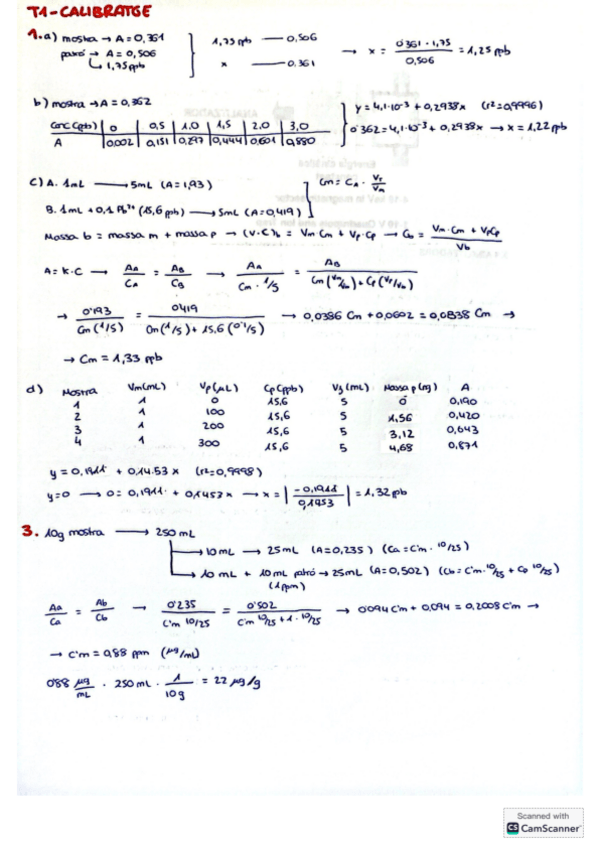 T1-CALIBRATGE
1.a) mostra → A = 0,361
patró → A = 0,506
↳ 1,75 ppb
1,75 ppb — 0,506
x — 0,361
→ x = 0'361 · 1,75 / 0,506 = 1,25 ppb
b) mostra → A = 0,362
Conc (ppb) | 0 | 0,5 | 1,0 | 1,5 | 2,0 | 3,0
A | 0,002 | 0,151 | 0,297 | 0,444 | 0,601 | 0,880
y = 4,1·10⁻³ + 0,2938x (r² = 0,9996)
0'362 = 4,1·10⁻³ + 0,2938x → x = 1,22 ppb
c) A. 1mL → 5mL (A = 1,93)
B. 1mL + 0,1 Pb²⁺ (15,6 ppb) → 5mL (A = 0,419)
Cm = CA · Vf/Vm
Massa b = massa m + massa p → (V·C)b = Vm Cm + Vp·Cp → Cb = Vm·Cm + VpCp / Vb
A = K·C → AA/CA = AB/CB → AA / Cm · 1/5 = AB / Cm(Vm/Vb) + Cp(Vp/Vb)
→ 0'193 / Cm(1/5) = 0'419 / Cm(1/5) + 15,6(0'1/5) → 0,0386 Cm + 0,0602 = 0,0838 Cm →
→ Cm = 1,33 ppb
d) Mostra Vm(mL) Vp(µL) Cp(ppb) Vf(mL) Massa p(ng) A
1 1 0 15,6 5 0 0,190
2 1 100 15,6 5 1,56 0,420
3 1 200 15,6 5 3,12 0,643
4 1 300 15,6 5 4,68 0,871
y = 0,1911 + 0,1453x (r² = 0,9998)
y = 0 → 0 = 0,1911 + 0,1453x → x = | -0,1911 / 0,1453 | = 1,32 ppb
3. 10g mostra → 250 mL
→ 10 mL → 25mL (A = 0,235) (Ca = C'm · 10/25)
→ 10 mL + 10mL patró → 25mL (A = 0,502) (Cb = C'm · 10/25 + Cp 10/25)
(1 ppm)
Aa/Ca = Ab/Cb → 0'235 / C'm 10/25 = 0'502 / C'm 10/25 + 1 · 10/25 → 0'094 C'm + 0,094 = 0,2008 C'm →
→ C'm = 0,88 ppm (µg/mL)
0'88 µg/mL · 250 mL · 1/10g = 22 µg/g
Scanned with
CS CamScanner